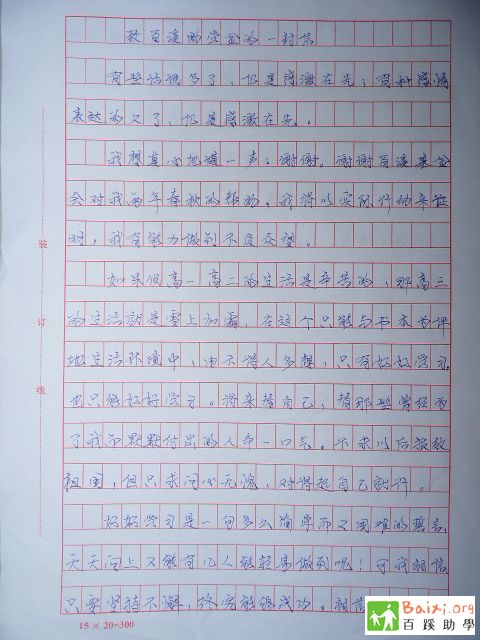 致百溪助学金的一封信
有些话说多了，仍是感激在先；有种感情
表达的久了，仍是感激在先。
我想真心地道一声：谢谢。谢谢百溪基金
会对我两年春秋的帮助。我得以实际行动来证
明，我有能力做到不负众望。
如果说高一高二的生活是辛苦的，那高三
的生活就是雪上加霜，在这个只能与书本为伴
地生活环境中，由不得人多想，只有好好学习
也只能好好学习。将来替自己，替那些曾经为
了我而默默付出的人争一口气。不求以后报效
祖国，但只求问心无愧，对得起自己就行。
好好学习是一句多么简单而又困难的誓言，
天天向上又能有几人能轻易做到呢！可我相信
只要坚持不懈，终究能够成功。相信
装
订
线
15×20=300
Baixi.org
百蹊助學